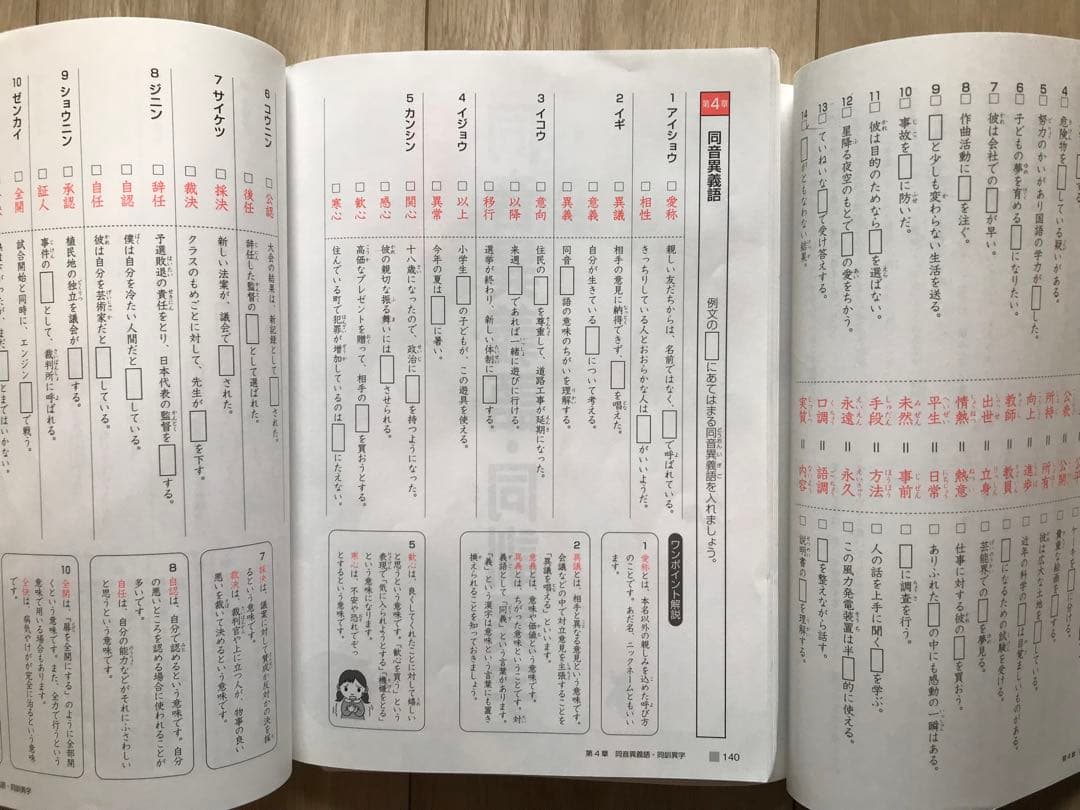 第4章 同音異義語
例文の□にあてはまる同音異義語を入れましょう。
1 アイショウ
□ 愛称 親しい友だちからは、名前ではなく、□で呼ばれている。
□ 相性 きっちりしている人とおおらかな人は□がいいようだ。
2 イギ
□ 異議 相手の意見に納得できず、□を唱えた。
□ 意義 自分が生きている□について考える。
□ 異義 同音□語の意味のちがいを理解する。
3 イコウ
□ 意向 住民の□を尊重して、道路工事が延期になった。
□ 以降 来週□であれば一緒に遊びに行ける。
□ 移行 選挙が終わり、新しい体制に□する。
4 イジョウ
□ 以上 小学生□の子どもが、この遊具を使える。
□ 異常 今年の夏は□に暑い。
5 カンシン
□ 関心 十八歳になったので、政治に□を持つようになった。
□ 感心 彼の親切な振る舞いには□させられる。
□ 歓心 高価なプレゼントを贈って、相手の□を買おうとする。
□ 寒心 住んでいる町で犯罪が増加しているのは□にたえない。
ワンポイント解説
1 愛称とは、本名以外の親しみを込めた呼び方
のことです。あだ名、ニックネームともいい
ます。
2 異議とは、相手と異なる意見という意味です。
会議などの中で対立意見を主張することを
「異議を唱える」といいます。
意義とは、意味や価値という意味です。
異義とは、ちがった意味ということです。対
義語として「同義」という言葉があります。
「義」という漢字は意味という言葉にも置き
換えられることを知っておきましょう。
5 歓心は、良くしてくれたことに対して嬉しい
と思う心です。「歓心を買う」という
表現で「気に入られようとする」「機嫌をとる」
という意味になります。
寒心は、不安や恐れでぞっ
とするという意味です。
第4章 同音異義語・同訓異字 140
6 コウニン
□ 公認 大会の結果は、新記録として□された。
□ 後任 辞任した監督の□として選ばれた。
7 サイケツ
□ 採決 新しい法案が、議会で□された。
□ 裁決 クラスのもめごとに対して、先生が□を下す。
8 ジニン
□ 辞任 予選敗退の責任をとり、日本代表の監督を□する。
□ 自認 僕は自分を冷たい人間だと□している。
□ 自任 彼は自分を芸術家だと□している。
9 ショウニン
□ 承認 植民地の独立を議会が□する。
□ 証人 事件の□として、裁判所に呼ばれる。
10 ゼンカイ
□ 全開 試合開始と同時に、エンジン□で戦う。
7 採決は、議案に対して賛成か反対かの決を採
るという意味です。
裁決は、裁判官や上に立つ人が、物事の良い
悪いを裁いて決めるという意味です。
8 自認は、自分で認めるという意味です。自分
の悪いところを認める場合に使われることが
多いです。
自任は、自分の能力などがそれにふさわしい
と思うという意味です。
10 全開は、「扉を全開にする」のように全部開
くという意味です。また、全力で行うという
意味で用いる場合もあります。
全快は、病気やけがが完全に治るという意味
です。
・同訓異字
4 危険物を□している疑いがある。
5 努力のかいがあり国語の学力が□した。
6 子どもの夢を育める□になりたい。
7 彼は会社での□が早い。
8 □ 作曲活動に□を注ぐ。
9 □ □と少しも変わらない生活を送る。
10 □ 事故を□に防いだ。
11 □ 彼は目的のためなら□を選ばない。
12 □ 星降る夜空のもとで□の愛をちかう。
13 □ ていねいな□で受け答えする。
14 □ □がともなわない結果。
所持 = 所有 □ 彼は広大な土地を□している。
向上 = 進歩 □ 近年の科学の□は目覚ましいものがある。
教師 = 教員 □ □になるための試験を受ける。
出世 = 立身 □ 芸能界での□を夢見る。
情熱 = 熱意 □ 仕事に対する彼の□を買おう。
平生 = 日常 □ ありふれた□の中にも感動の一瞬はある。
未然 = 事前 □ □に調査を行う。
手段 = 方法 □ 人の話を上手に聞く□を学ぶ。
永遠 = 永久 □ この風力発電装置は半□的に使える。
口調 = 語調 □ □を整えながら話す。
実質 = 内容 □ 説明書の□を理解する。